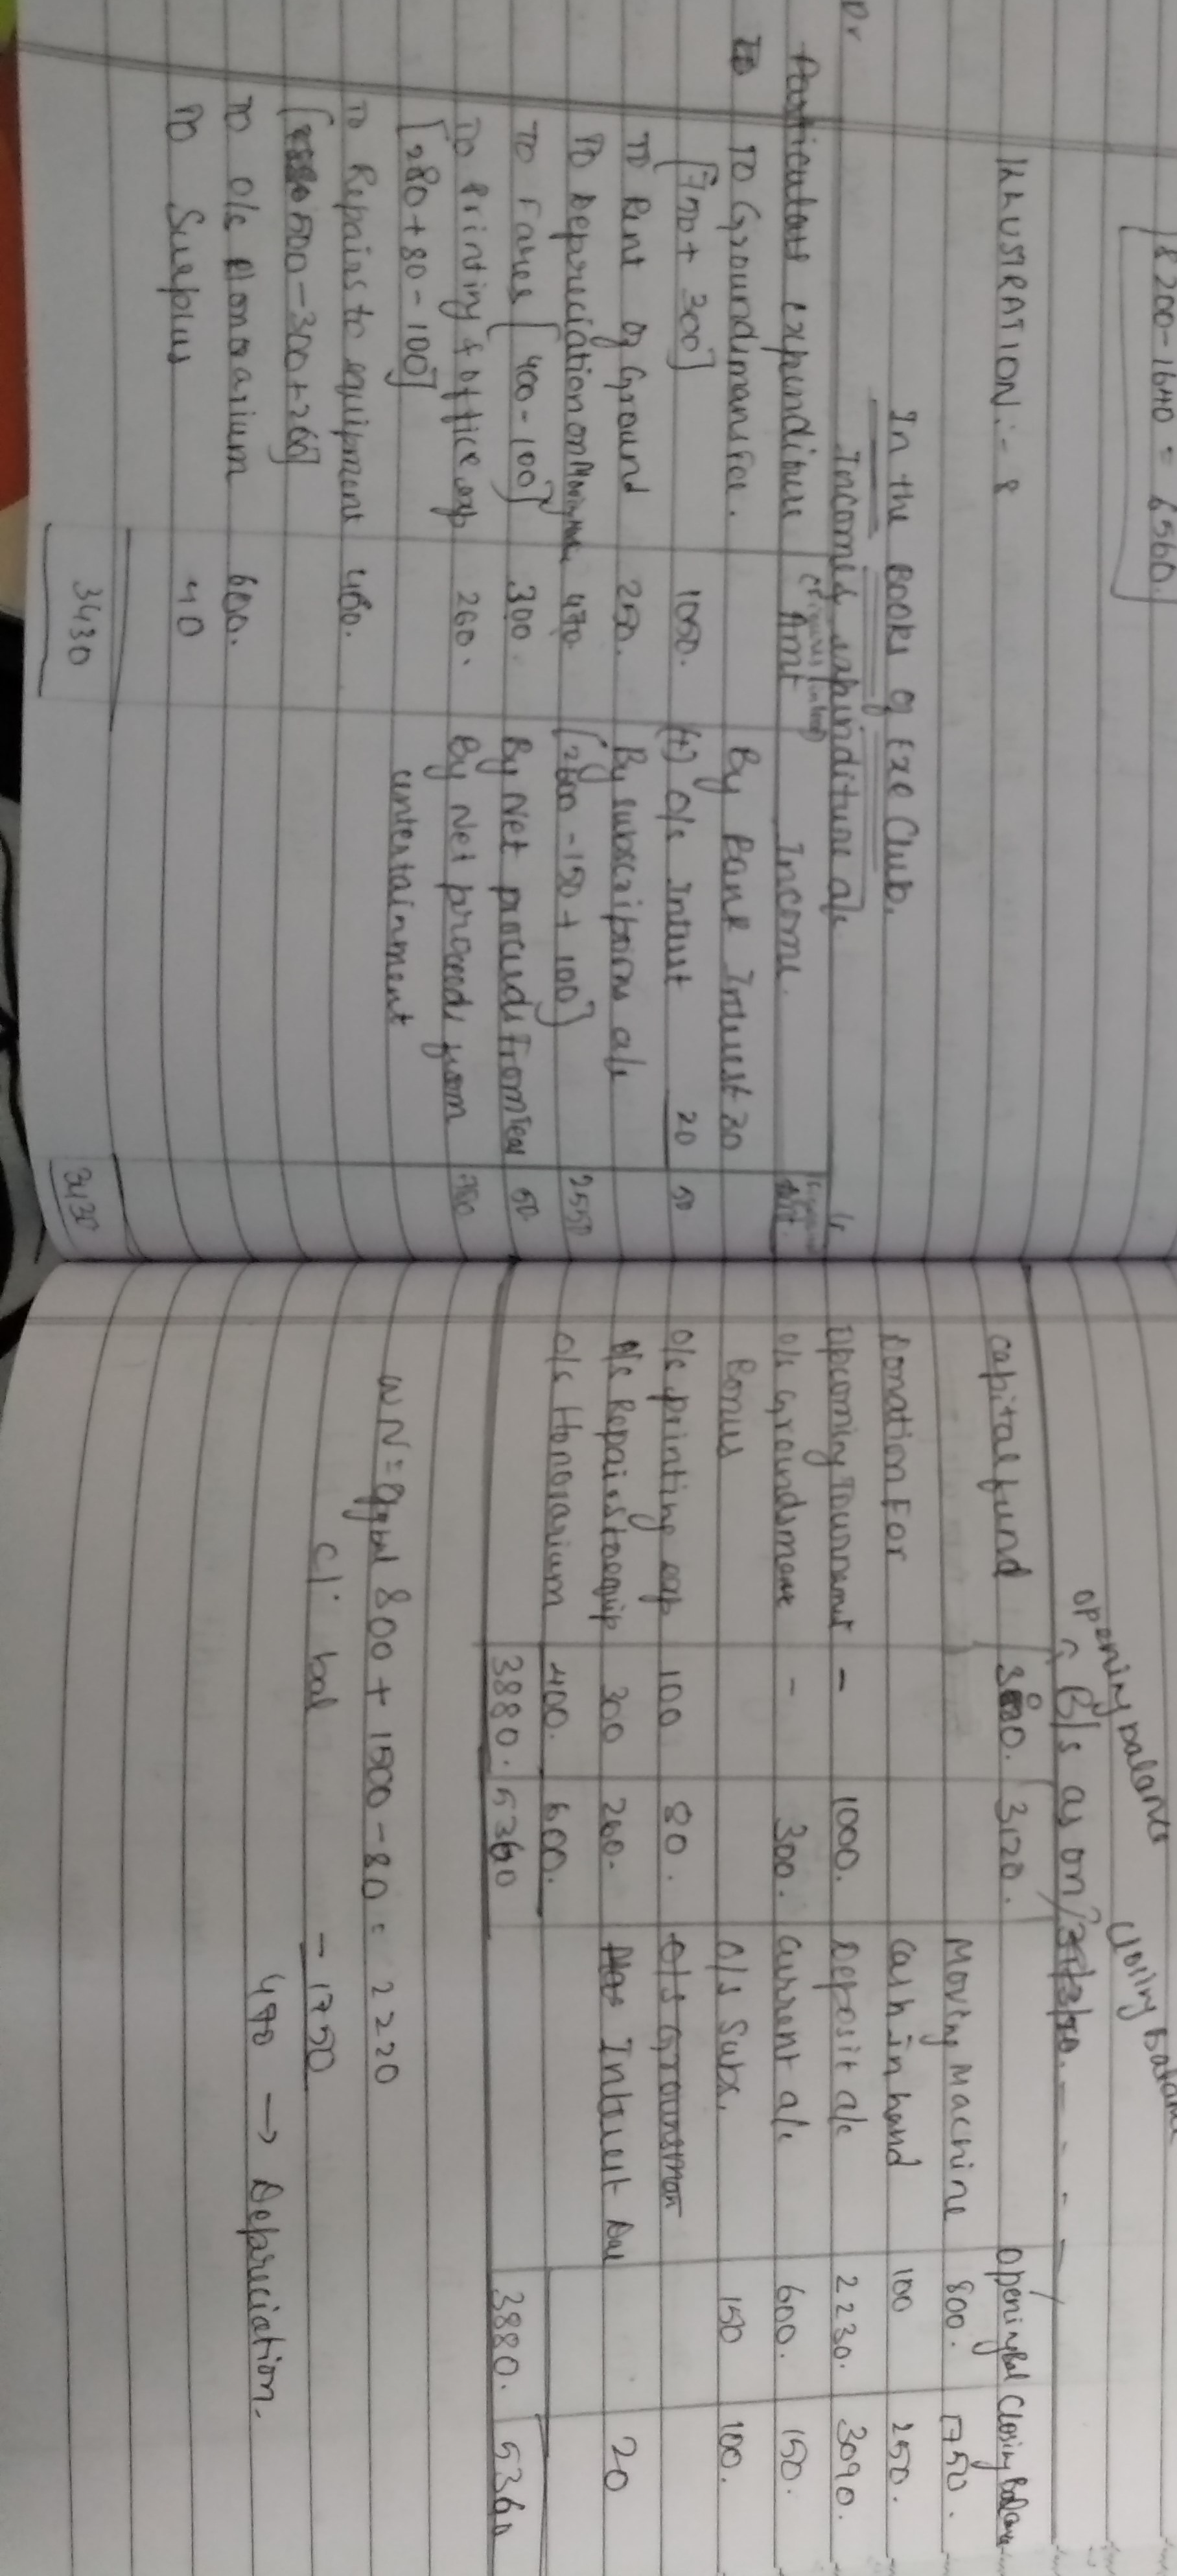 8200-1640 = 6560.
ILLUSTRATION:- 8
In the Books of Exe Club.
Income & expenditure a/c
Dr
Cr
expenditure Amt Income.
To Groundsmansfee. By Bank Interest 30
[750+ 300] 1050. (+) O/s Interest 20 50
To Rent of Ground 250. By subscriptions a/c
To Depreciation on 470. [2600 -150 + 100] 2550
To Fares [400-100] 300. By Net proceeds from Tea 50
To Printing & office exp 260. By Net proceeds from
[280+80-100] entertainment
To Repairs to equipment 460.
500-300+260]
To O/s Honorarium 600.
To Surplus 40
3430 3430
opening balance closing
B/s as on
capital fund 3120. Opening Bal Closing Balance
Moving Machine 800. 1750.
Donation For cash in hand 100 250.
Upcoming Tournament - 1000. Deposit a/c 2230. 3090.
O/s groundsmane - 300. current a/c 600. 150.
Bonus O/s Subs. 150 100.
O/s printing exp 100 80. O/s Groundsman
O/s Repairs to equip 300 260. Interest Due 20
O/s Honorarium 400. 600.
3880. 5360 3880. 5360
WN = 800 + 1500 - 80 = 2220
cl. bal - 1750
470 → Depriciation.